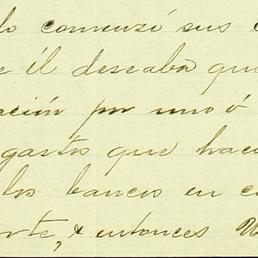 lo comenzó sus
él deseaba que
ción por uno ó
gastos que haci
los bancos en
rte, & entonces